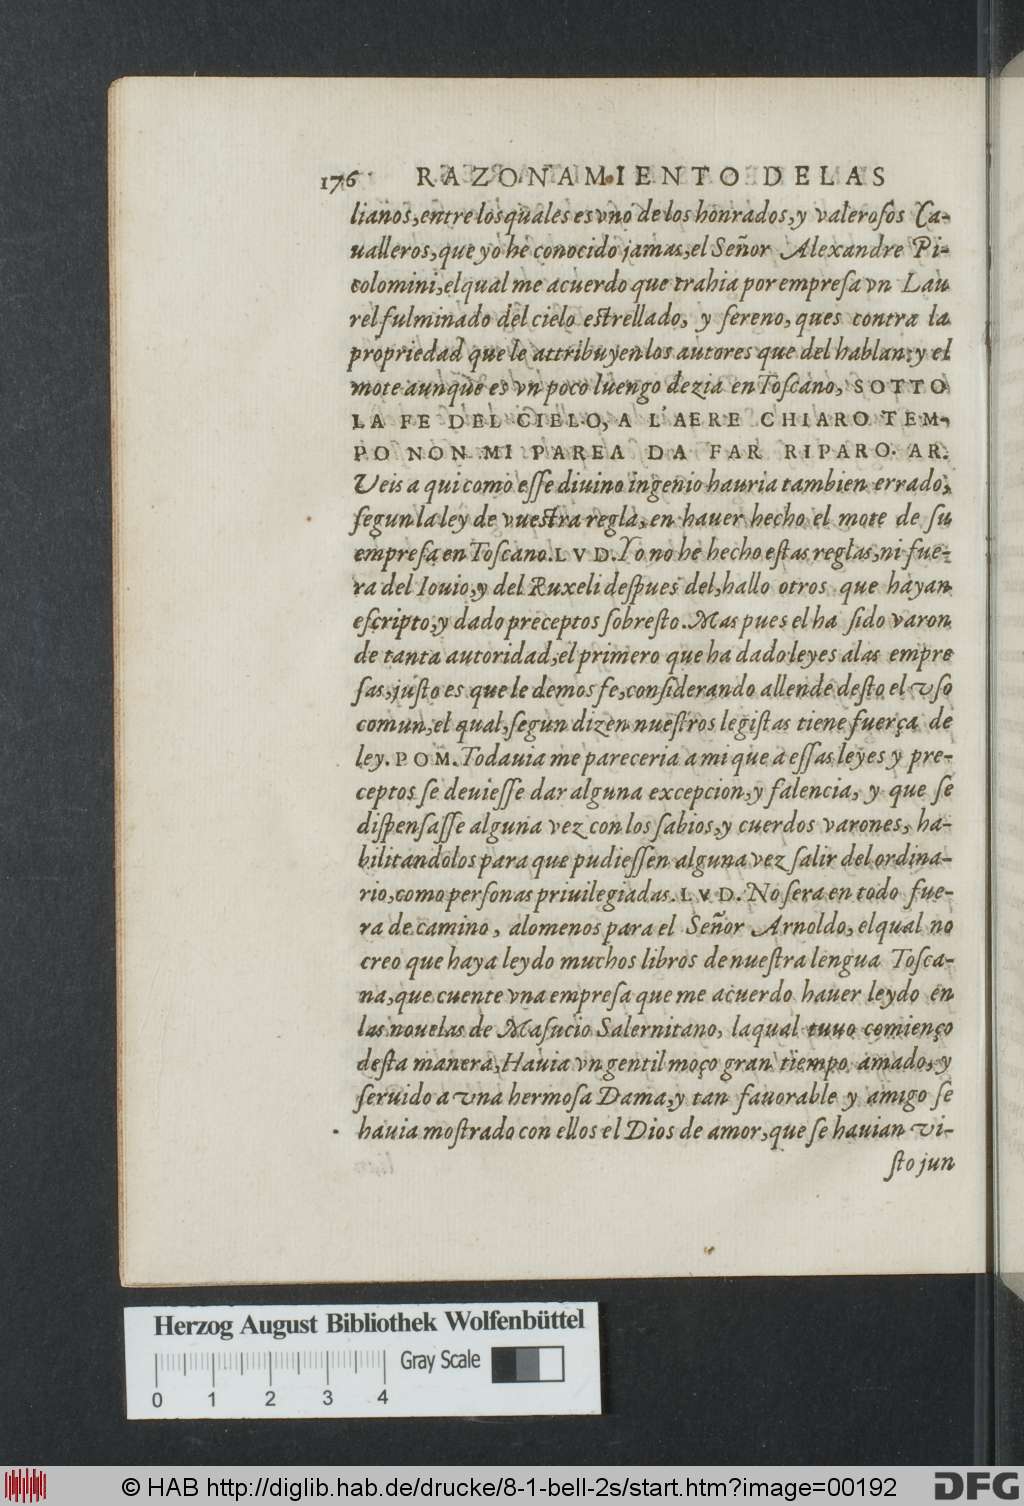 176 RAZONAMIENTO DE LAS
lianos, entre los quales es vno de los honrados, y valerosos Ca-
ualleros, que yo he conocido jamas, el Señor Alexandre Pi-
colomini, el qual me acuerdo que trahia por empresa vn Lau
rel fulminado del cielo estrellado, y sereno, ques contra la
propriedad que le attribuyen los autores que del hablan: y el
mote aunque es vn poco luengo dezia en Toscano, SOTTO
LA FE DEL CIELO, A L'AERE CHIARO TEM-
PO NON MI PAREA DA FAR RIPARO. AR.
Veis a qui como esse diuino ingenio hauria tambien errado,
segun la ley de vuestra regla, en hauer hecho el mote de su
empresa en Toscano. LVD. Yo no he hecho estas reglas, ni fue-
ra del Iouio, y del Ruxeli despues del, hallo otros que hayan
escripto, y dado preceptos sobresto. Mas pues el ha sido varon
de tanta autoridad, el primero que ha dado leyes a las empre
sas, justo es que le demos fe, considerando allende desto el vso
comun, el qual, segun dizen nuestros legistas tiene fuerça de
ley. POM. Todauia me pareceria a mi que a essas leyes y pre-
ceptos se deuiesse dar alguna excepcion, y falencia, y que se
dispensasse alguna vez con los sabios, y cuerdos varones, ha-
bilitandolos para que pudiessen alguna vez salir del ordina-
rio, como personas priuilegiadas. LVD. No sera en todo fue-
ra de camino, alomenos para el Señor Arnoldo, el qual no
creo que haya leydo muchos libros de nuestra lengua Tosca-
na, que cuente vna empresa que me acuerdo hauer leydo en
las nouelas de Masucio Salernitano, la qual tuuo comienço
desta manera, Hauia vn gentil moço gran tiempo amado, y
seruido a vna hermosa Dama, y tan fauorable y amigo se
hauia mostrado con ellos el Dios de amor, que se hauian vi-
sto jun
Herzog August Bibliothek Wolfenbüttel
Gray Scale
0 1 2 3 4
© HAB http://diglib.hab.de/drucke/8-1-bell-2s/start.htm?image=00192
DFG